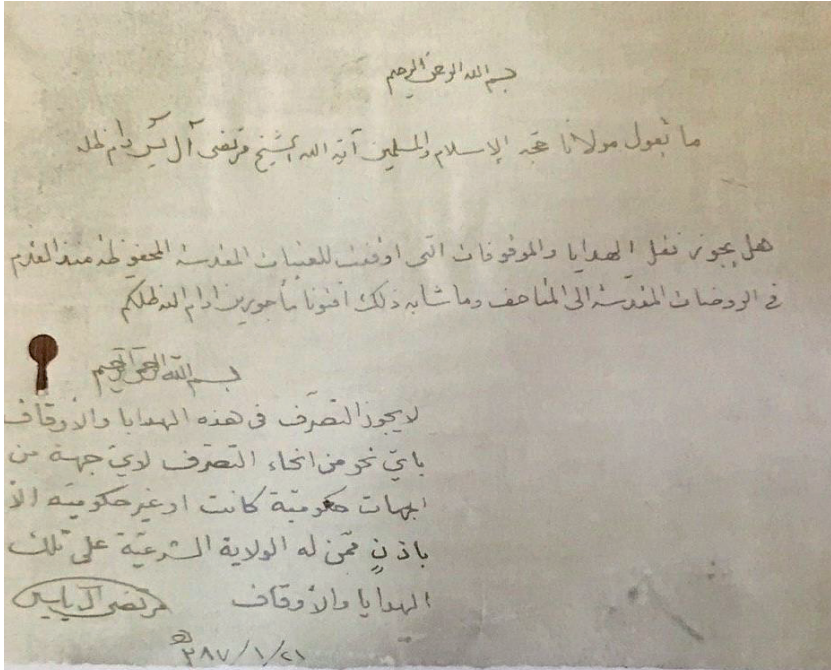 بسم الله الرحمن الرحيم
ما تقول مولانا حجة الإسلام والمسلمين آية الله الشيخ مرتضى آل يس دام ظله
هل يجوز نقل الهدايا والموقوفات التي اوقفت للعتبات المقدسة المحفوظة منذ القدم
في الروضات المقدسة الى المتاحف وما شابه ذلك افتونا مأجورين ادام الله ظلكم
بسم الله الرحمن الرحيم
لا يجوز التصرّف في هذه الهدايا والأوقاف
بايّ نحو من انحاء التصرّف لايّ جهة من
الجهات حكوميّة كانت او غير حكوميّه الّا
باذنٍ ممّن له الولاية الشرعيّة على تلك
الهدايا والأوقاف مرتضى آل ياسين
٢١/١/٣٨٧ هـ